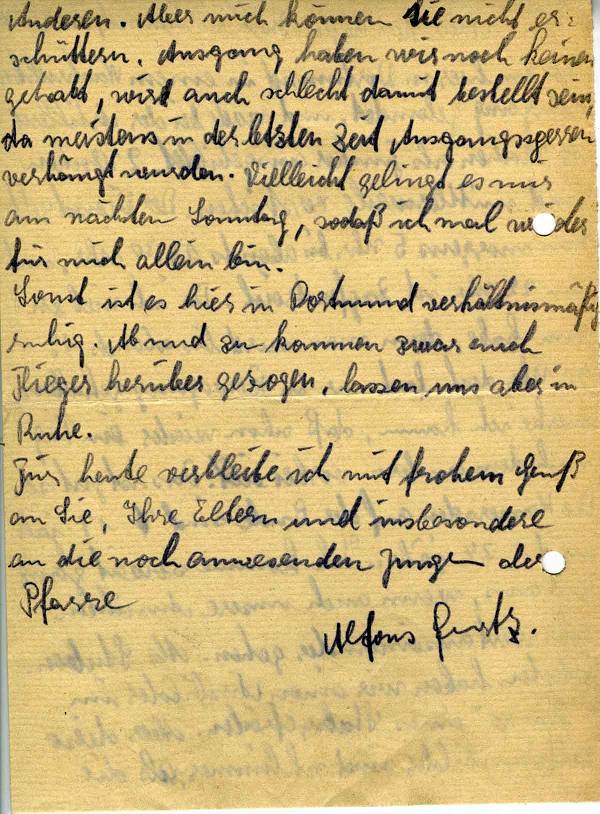 Anderen. Aber mich können sie nicht er-
schüttern. Ausgang haben wir noch keinen
gehabt, wird auch schlecht damit bestellt sein,
da meistens in der letzten Zeit Ausgangssperren
verhängt wurden. Vielleicht gelingt es mir
am nächsten Sonntag, sodaß ich mal wieder
für mich allein bin.
Sonst ist es hier in Dortmund verhältnismäßig
ruhig. Ab und zu kommen zwar auch
Flieger herüber gezogen, lassen uns aber in
Ruhe.
Für heute verbleibe ich mit frohem Gruß
an Sie, Ihre Eltern und insbesondere
an die noch anwesenden Jungen der
Pfarre
Alfons